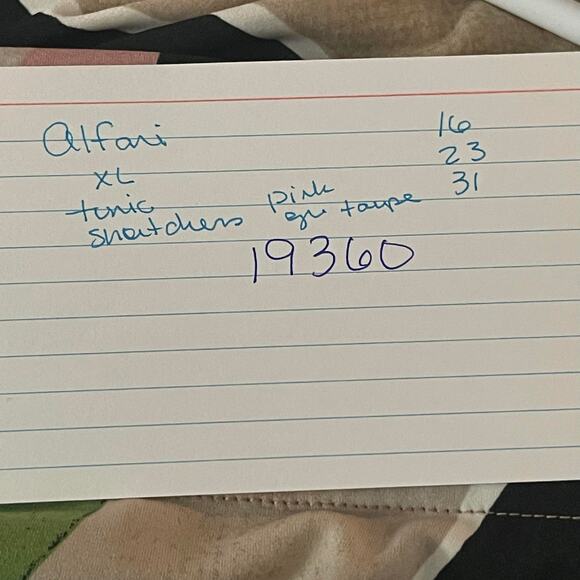 Alfani 16
XL 23
tunic pink 31
gr taupe
19360